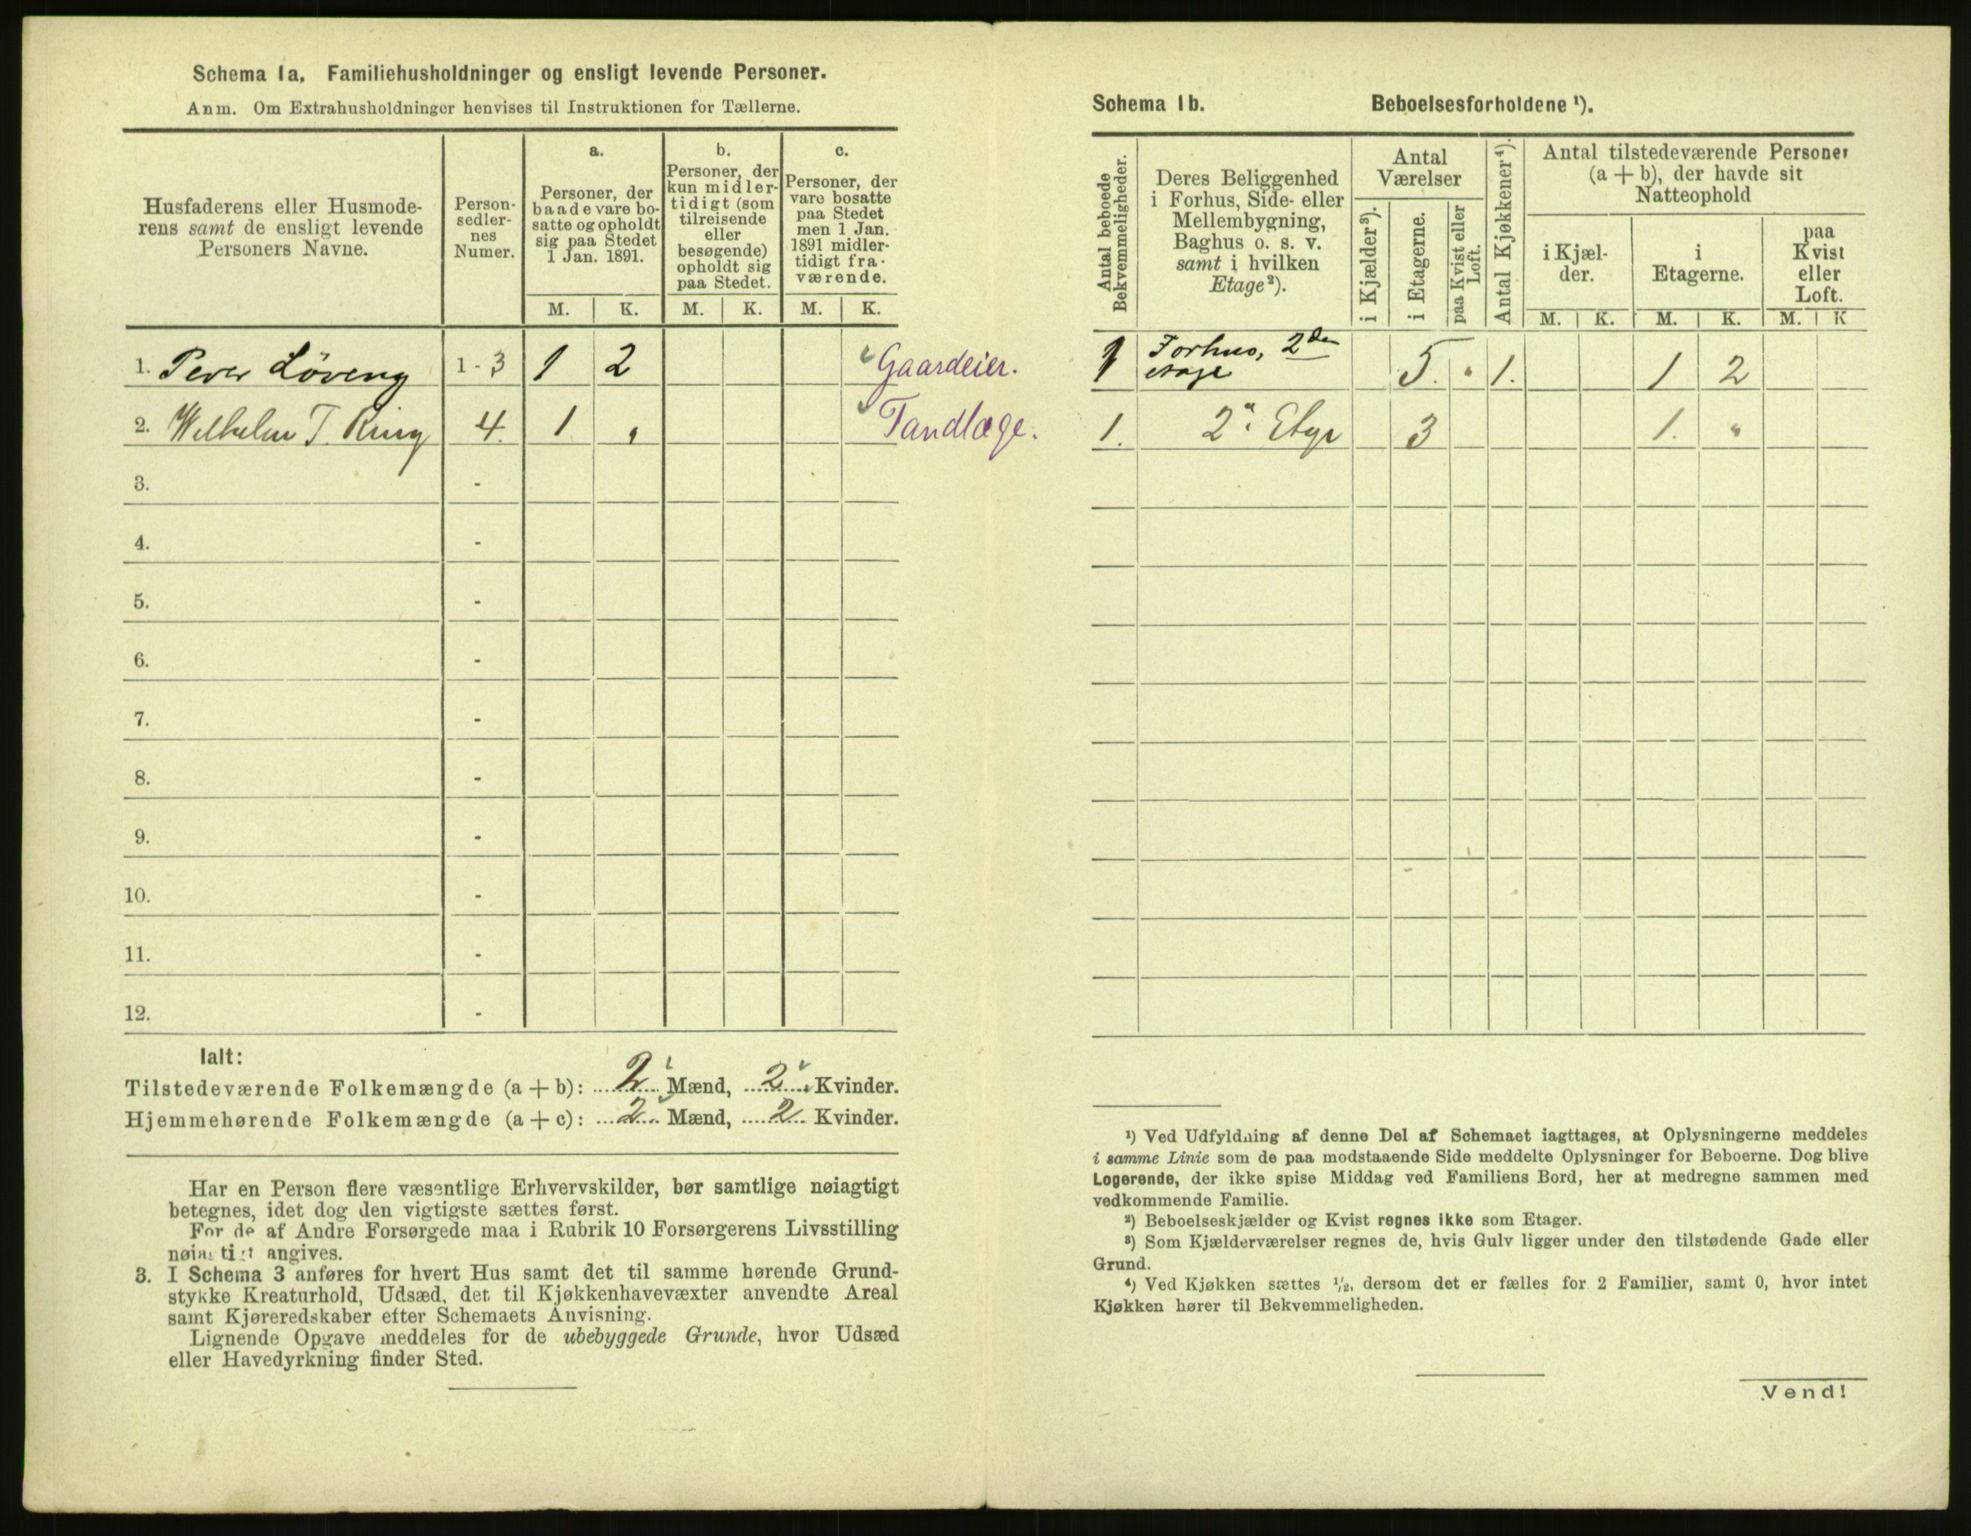 Schema 1a. Familiehusholdninger og ensligt levende Personer.
Anm. Om Extrahusholdninger henvises til Instruktionen for Tællerne.
Husfaderens eller Husmode-
rens samt de ensligt levende
Personers Navne.
Person-
sedler-
nes
Numer.
a.
Personer, der
baade vare bo-
satte og opholdt
sig paa Stedet
1 Jan. 1891.
b.
Personer, der
kun midler-
tidigt (som
tilreisende
eller
besøgende)
opholdt sig
paa Stedet.
c.
Personer, der
vare bosatte
paa Stedet
men 1 Jan.
1891 midler-
tidigt fra-
værende.
M. K. M. K. M. K.
1. Peter Löveng 1-3 1 2 Gaardeier.
2. Wilhelm T. Ring 4. 1 " Tandlæge.
3. -
4. -
5. -
6. -
7. -
8. -
9. -
10. -
11. -
12. -
Ialt:
Tilstedeværende Folkemængde (a + b): 2 Mænd, 2 Kvinder.
Hjemmehørende Folkemængde (a + c): 2 Mænd, 2 Kvinder.
Har en Person flere væsentlige Erhvervskilder, bør samtlige nøiagtigt
betegnes, idet dog den vigtigste sættes først.
For de af Andre Forsørgede maa i Rubrik 10 Forsørgerens Livsstilling
nøiagtigt angives.
3. I Schema 3 anføres for hvert Hus samt det til samme hørende Grund-
stykke Kreaturhold, Udsæd, det til Kjøkkenhavevæxter anvendte Areal
samt Kjøreredskaber efter Schemaets Anvisning.
Lignende Opgave meddeles for de ubebyggede Grunde, hvor Udsæd
eller Havedyrkning finder Sted.
Schema 1b. Beboelsesforholdene ¹).
Antal beboede
Bekvemmeligheder.
Deres Beliggenhed
i Forhus, Side- eller
Mellembygning,
Baghus o. s. v.
samt i hvilken
Etage²).
Antal
Værelser
i Kjælder³).
i Etagerne.
paa Kvist eller
Loft.
Antal Kjøkkener⁴).
Antal tilstedeværende Personer
(a + b), der havde sit
Natteophold
i Kjæl-
der.
i
Etagerne.
paa
Kvist
eller
Loft.
M. K. M. K. M. K
1 Forhus, 2den 5. " 1. 1 2
etage
1. 2" Etge 3 1. "
¹) Ved Udfyldning af denne Del af Schemaet iagttages, at Oplysningerne meddeles
i samme Linie som de paa modstaaende Side meddelte Oplysninger for Beboerne. Dog blive
Logerende, der ikke spise Middag ved Familiens Bord, her at medregne sammen med
vedkommende Familie.
²) Beboelseskjælder og Kvist regnes ikke som Etager.
³) Som Kjælderværelser regnes de, hvis Gulv ligger under den tilstødende Gade eller
Grund.
⁴) Ved Kjøkken sættes ½, dersom det er fælles for 2 Familier, samt 0, hvor intet
Kjøkken hører til Bekvemmeligheden.
Vend!